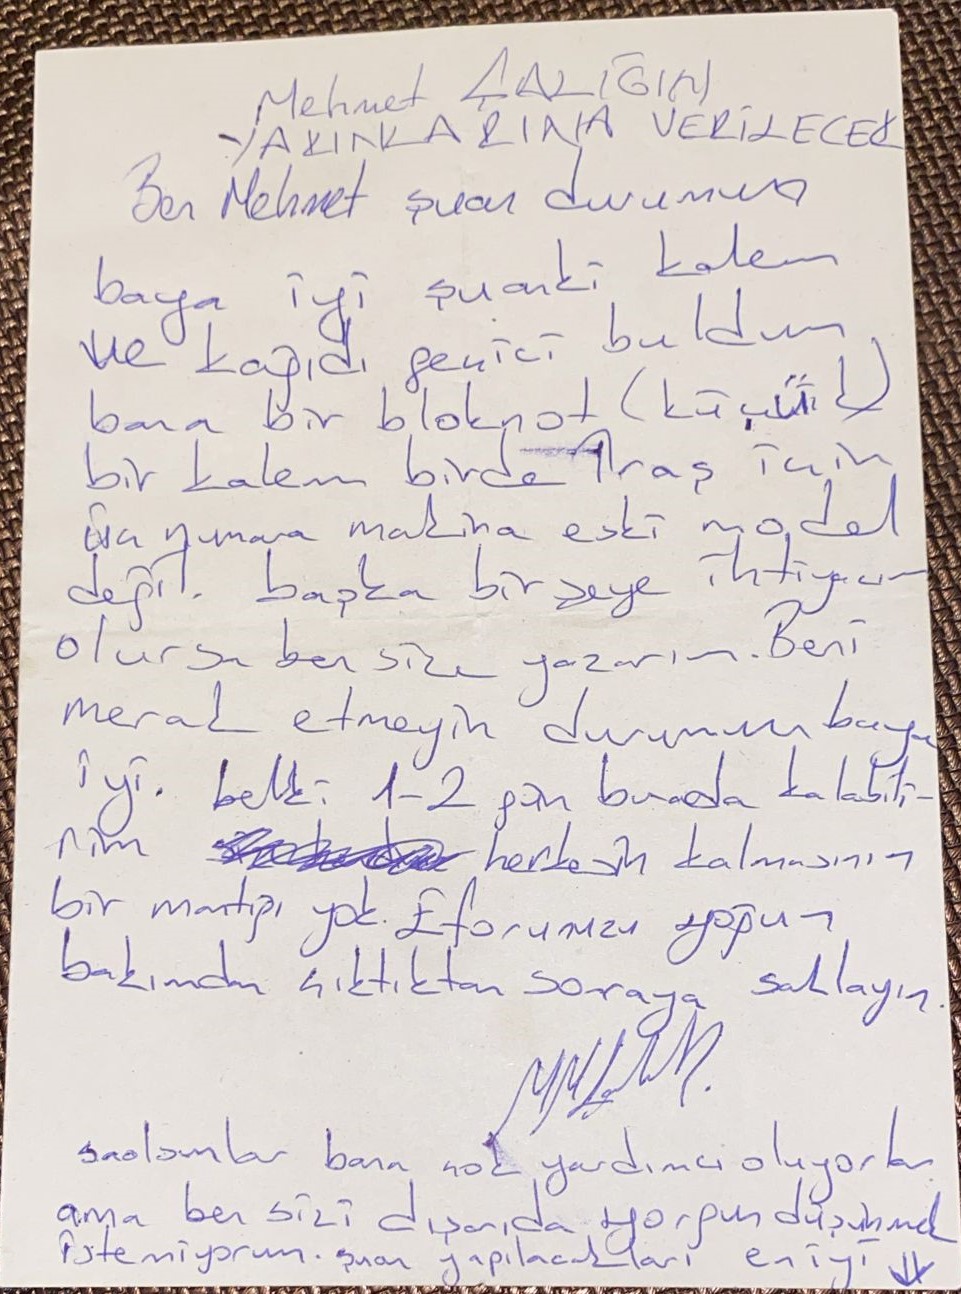 Mehmet ÇALIĞIN
YAKINLARINA VERİLECEK
Ben Mehmet şuan durumum
baya iyi şuanki kalem
ve kağıdı geçici buldum
bana bir bloknot (küçük)
bir kalem birde Traş için
üç numara makina eski model
değil. başka bir şeye ihtiyacım
olursa ben size yazarım. Beni
merak etmeyin durumum baya
iyi. belki 1-2 gün burada kalabili-
rim herkesin kalmasının
bir mantığı yok. Eforunuzu yoğun
bakımdan çıktıktan soraya saklayın.
saolsunlar bana çok yardımcı oluyorlar
ama ben sizi dışarıda yorgun düşünmek
istemiyorum. şuan yapılacakları en iyi